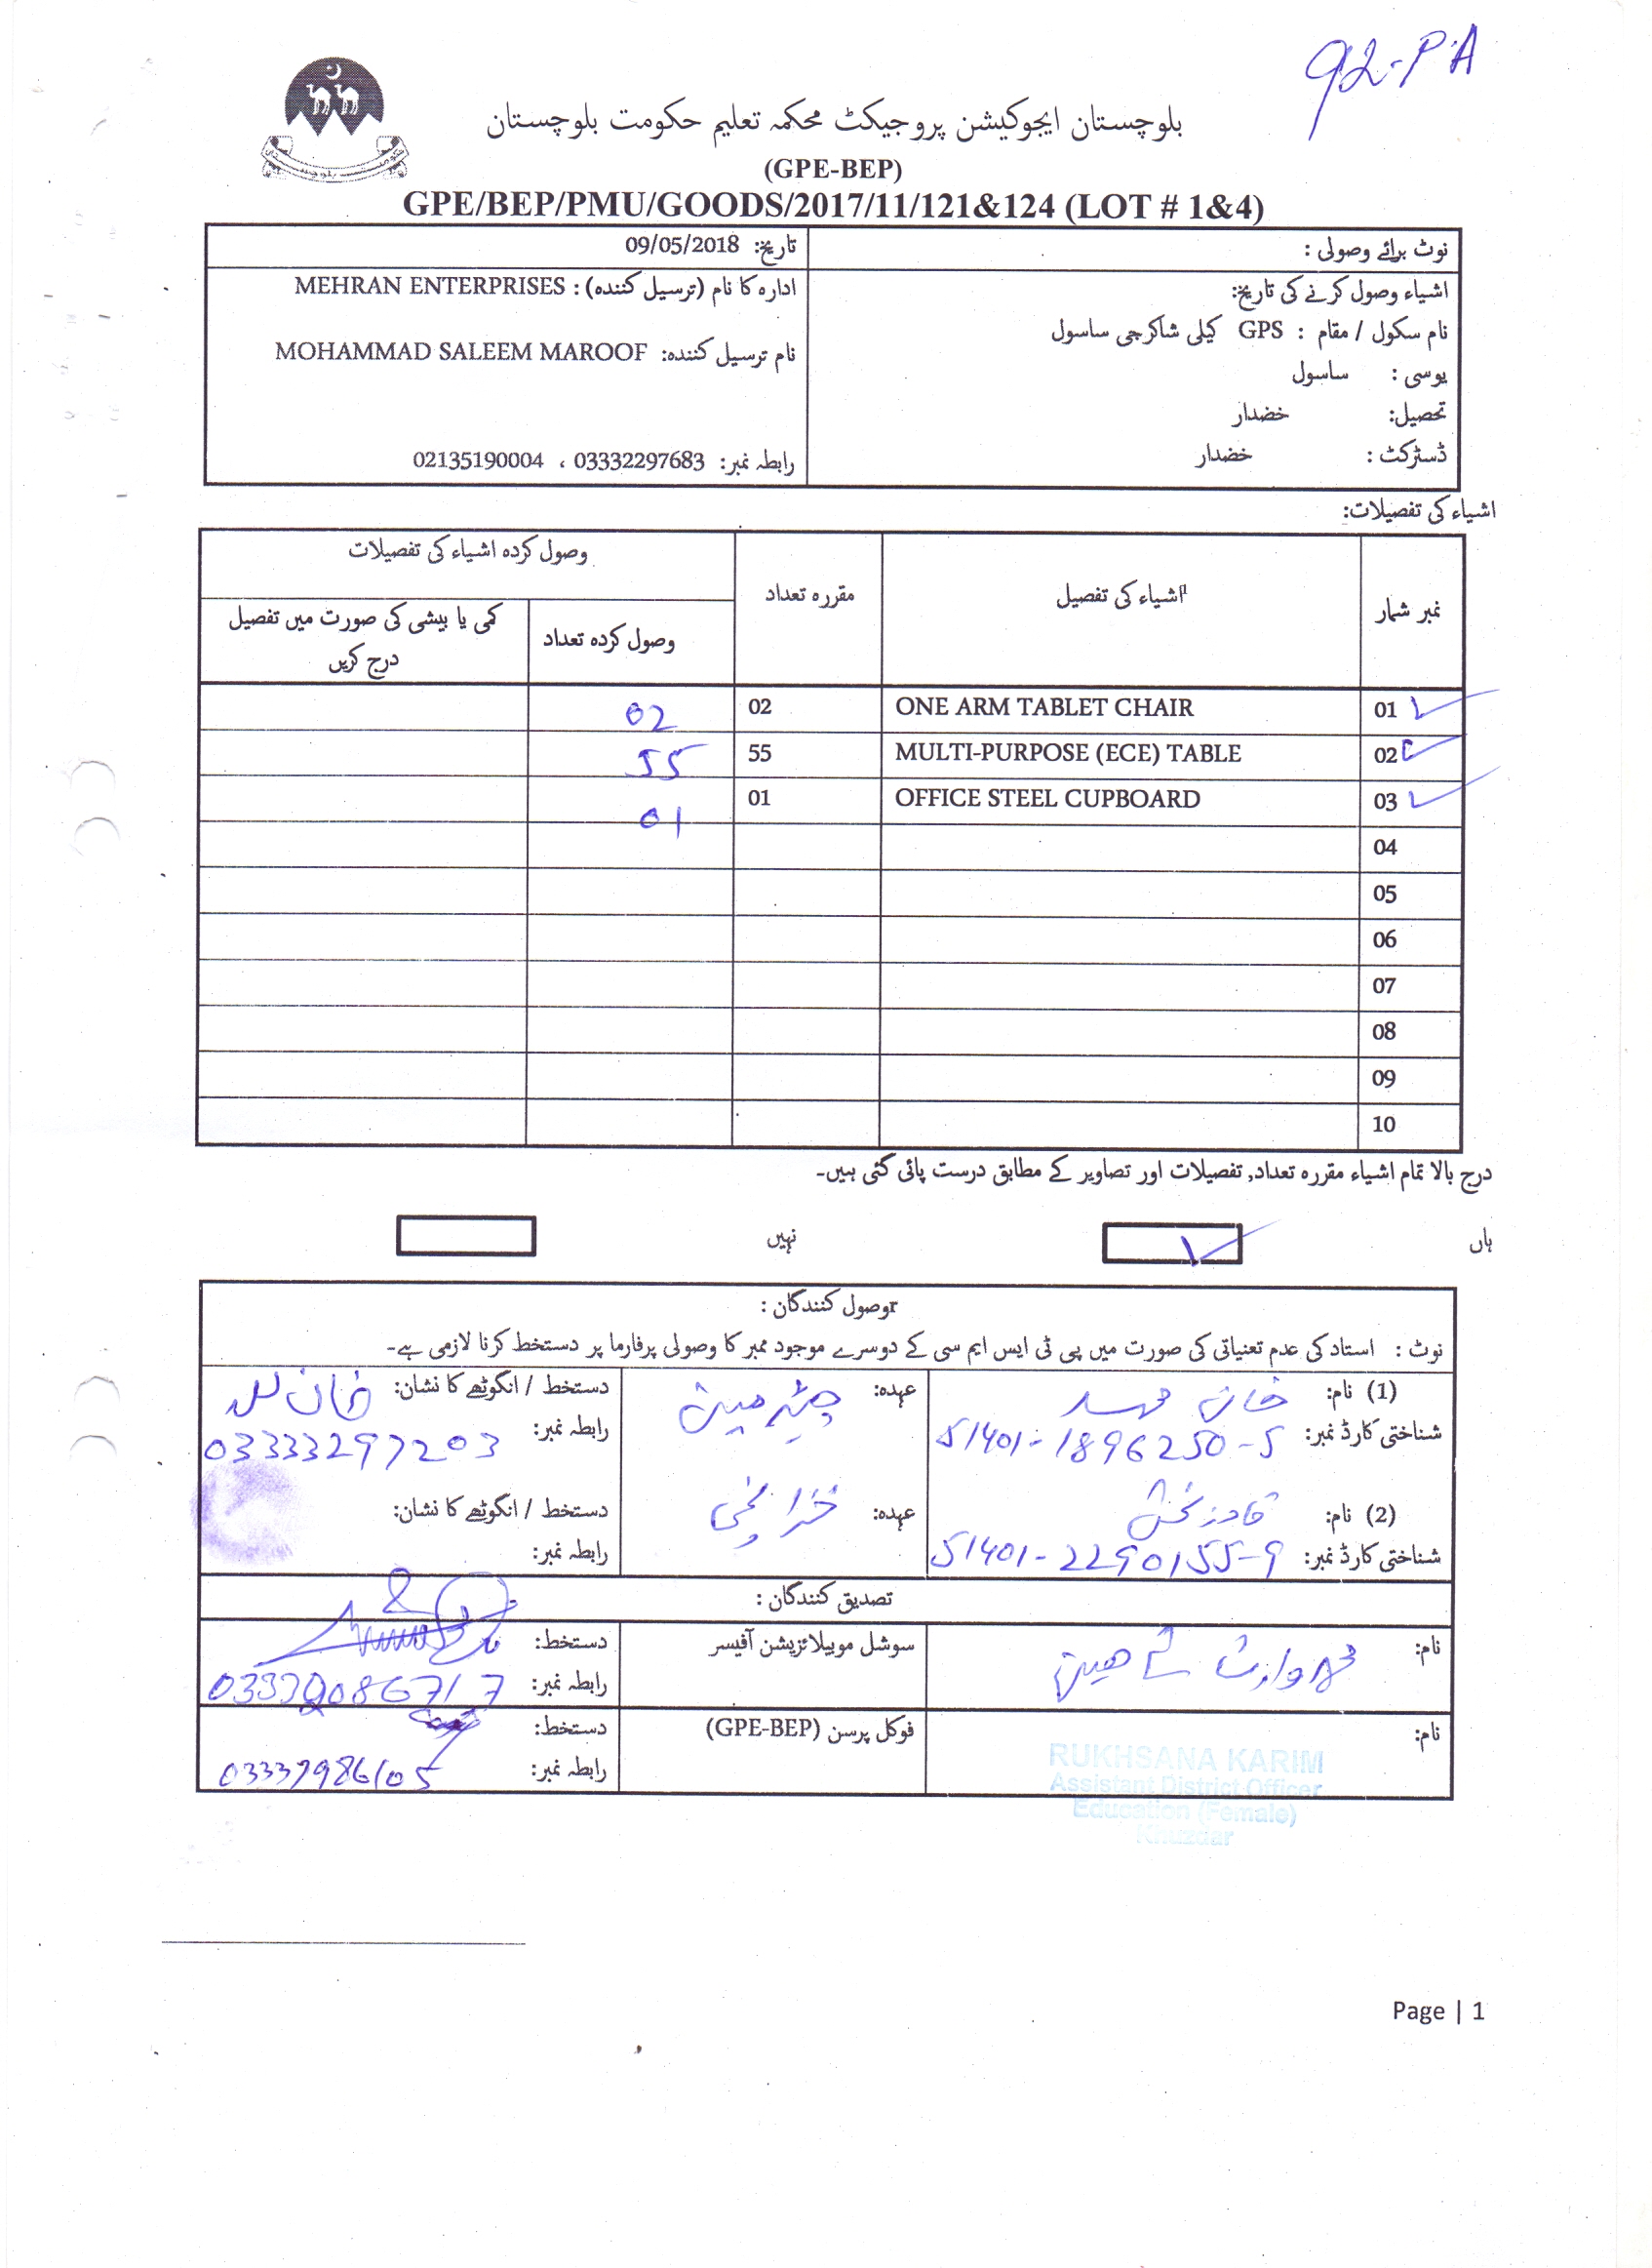 92-P.A
بلوچستان ایجوکیشن پروجیکٹ محکمہ تعلیم حکومت بلوچستان
(GPE-BEP)
GPE/BEP/PMU/GOODS/2017/11/121&124 (LOT # 1&4)
نوٹ برائے وصولی :
اشیاء وصول کرنے کی تاریخ:
نام سکول / مقام : GPS کیلی شاکرجی ساسول
یوسی : ساسول
تحصیل: خضدار
ڈسٹرکٹ : خضدار
تاریخ: 09/05/2018
ادارہ کا نام (ترسیل کنندہ) : MEHRAN ENTERPRISES
نام ترسیل کنندہ: MOHAMMAD SALEEM MAROOF
رابطہ نمبر: 03332297683 ، 02135190004
اشیاء کی تفصیلات:
نمبر شمار اشیاء کی تفصیل مقررہ تعداد وصول کردہ اشیاء کی تفصیلات
وصول کردہ تعداد کمی یا بیشی کی صورت میں تفصیل درج کریں
01 ONE ARM TABLET CHAIR 02 02
02 MULTI-PURPOSE (ECE) TABLE 55 55
03 OFFICE STEEL CUPBOARD 01 01
04
05
06
07
08
09
10
درج بالا تمام اشیاء مقررہ تعداد, تفصیلات اور تصاویر کے مطابق درست پائی گئی ہیں۔
ہاں نہیں
وصول کنندگان :
نوٹ : استاد کی عدم تعنیاتی کی صورت میں پی ٹی ایس ایم سی کے دوسرے موجود ممبر کا وصولی پرفارما پر دستخط کرنا لازمی ہے۔
(1) نام: خان محمد عہدہ: چیئرمین دستخط / انگوٹھے کا نشان:
شناختی کارڈ نمبر: 51401-1896250-5 رابطہ نمبر: 03333297203
(2) نام: قادر بخش عہدہ: خزانچی دستخط / انگوٹھے کا نشان:
شناختی کارڈ نمبر: 51401-2290155-9 رابطہ نمبر:
تصدیق کنندگان :
نام: محمد وارث سوشل موبیلائزیشن آفیسر دستخط:
رابطہ نمبر:
نام: فوکل پرسن (GPE-BEP) دستخط:
رابطہ نمبر: 03337986105
RUKHSANA KARIM
Assistant District Officer
Education (Female)
Khuzdar
Page | 1